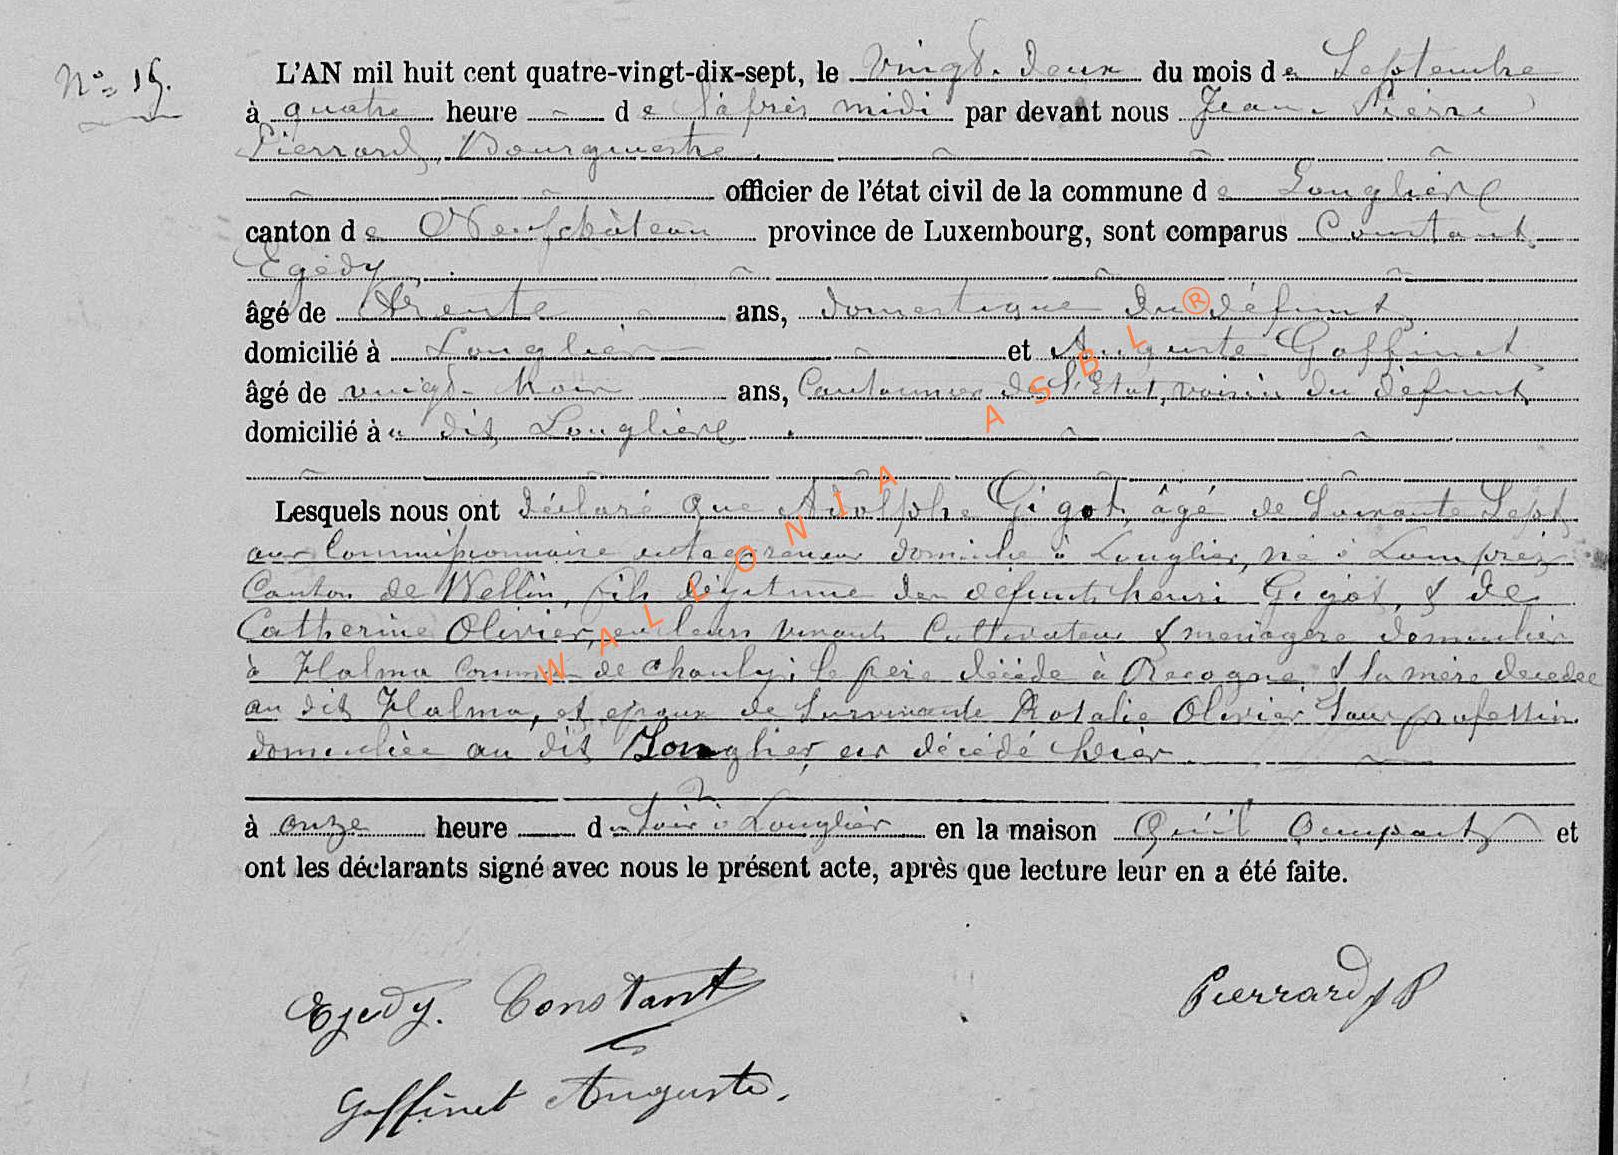 N° 15.
L'AN mil huit cent quatre-vingt-dix-sept, le vingt-deux du mois de Septembre
à quatre heure de l'après midi par devant nous Jean Pierre
Pierrard, Bourgmestre,
officier de l'état civil de la commune de Longlier
canton de Neufchâteau province de Luxembourg, sont comparus Constant
Egédy
âgé de trente ans, domestique du défunt,
domicilié à Longlier et Auguste Goffinet
âgé de vingt- ans, Cantonnier de l'Etat, voisin du défunt
domicilié à u dit Longlier
Lesquels nous ont déclaré que Adolphe Gigot, âgé de Soixante Sept
ans Commissionnaire entrepreneur domicilié à Longlier, né à Lomprez
Canton de Wellin, fils légitime des défunts henri Gigot, & de
Catherine Olivier, en leurs vivants Cultivateur & menagère domiciliés
à Halma commune de Chanly; le père décédé à Recogne & la mère decedée
au dit Halma, et epoux de Survivante Rosalie Olivier Sans profession
domiciliée au dit Longlier, est décédé hier
à onze heure du Soir à Longlier en la maison Qu'il Occupait et
ont les déclarants signé avec nous le présent acte, après que lecture leur en a été faite.
Egedy. Constant
Pierrard J P
Goffinet Auguste.
WALLONIA ASBL ®